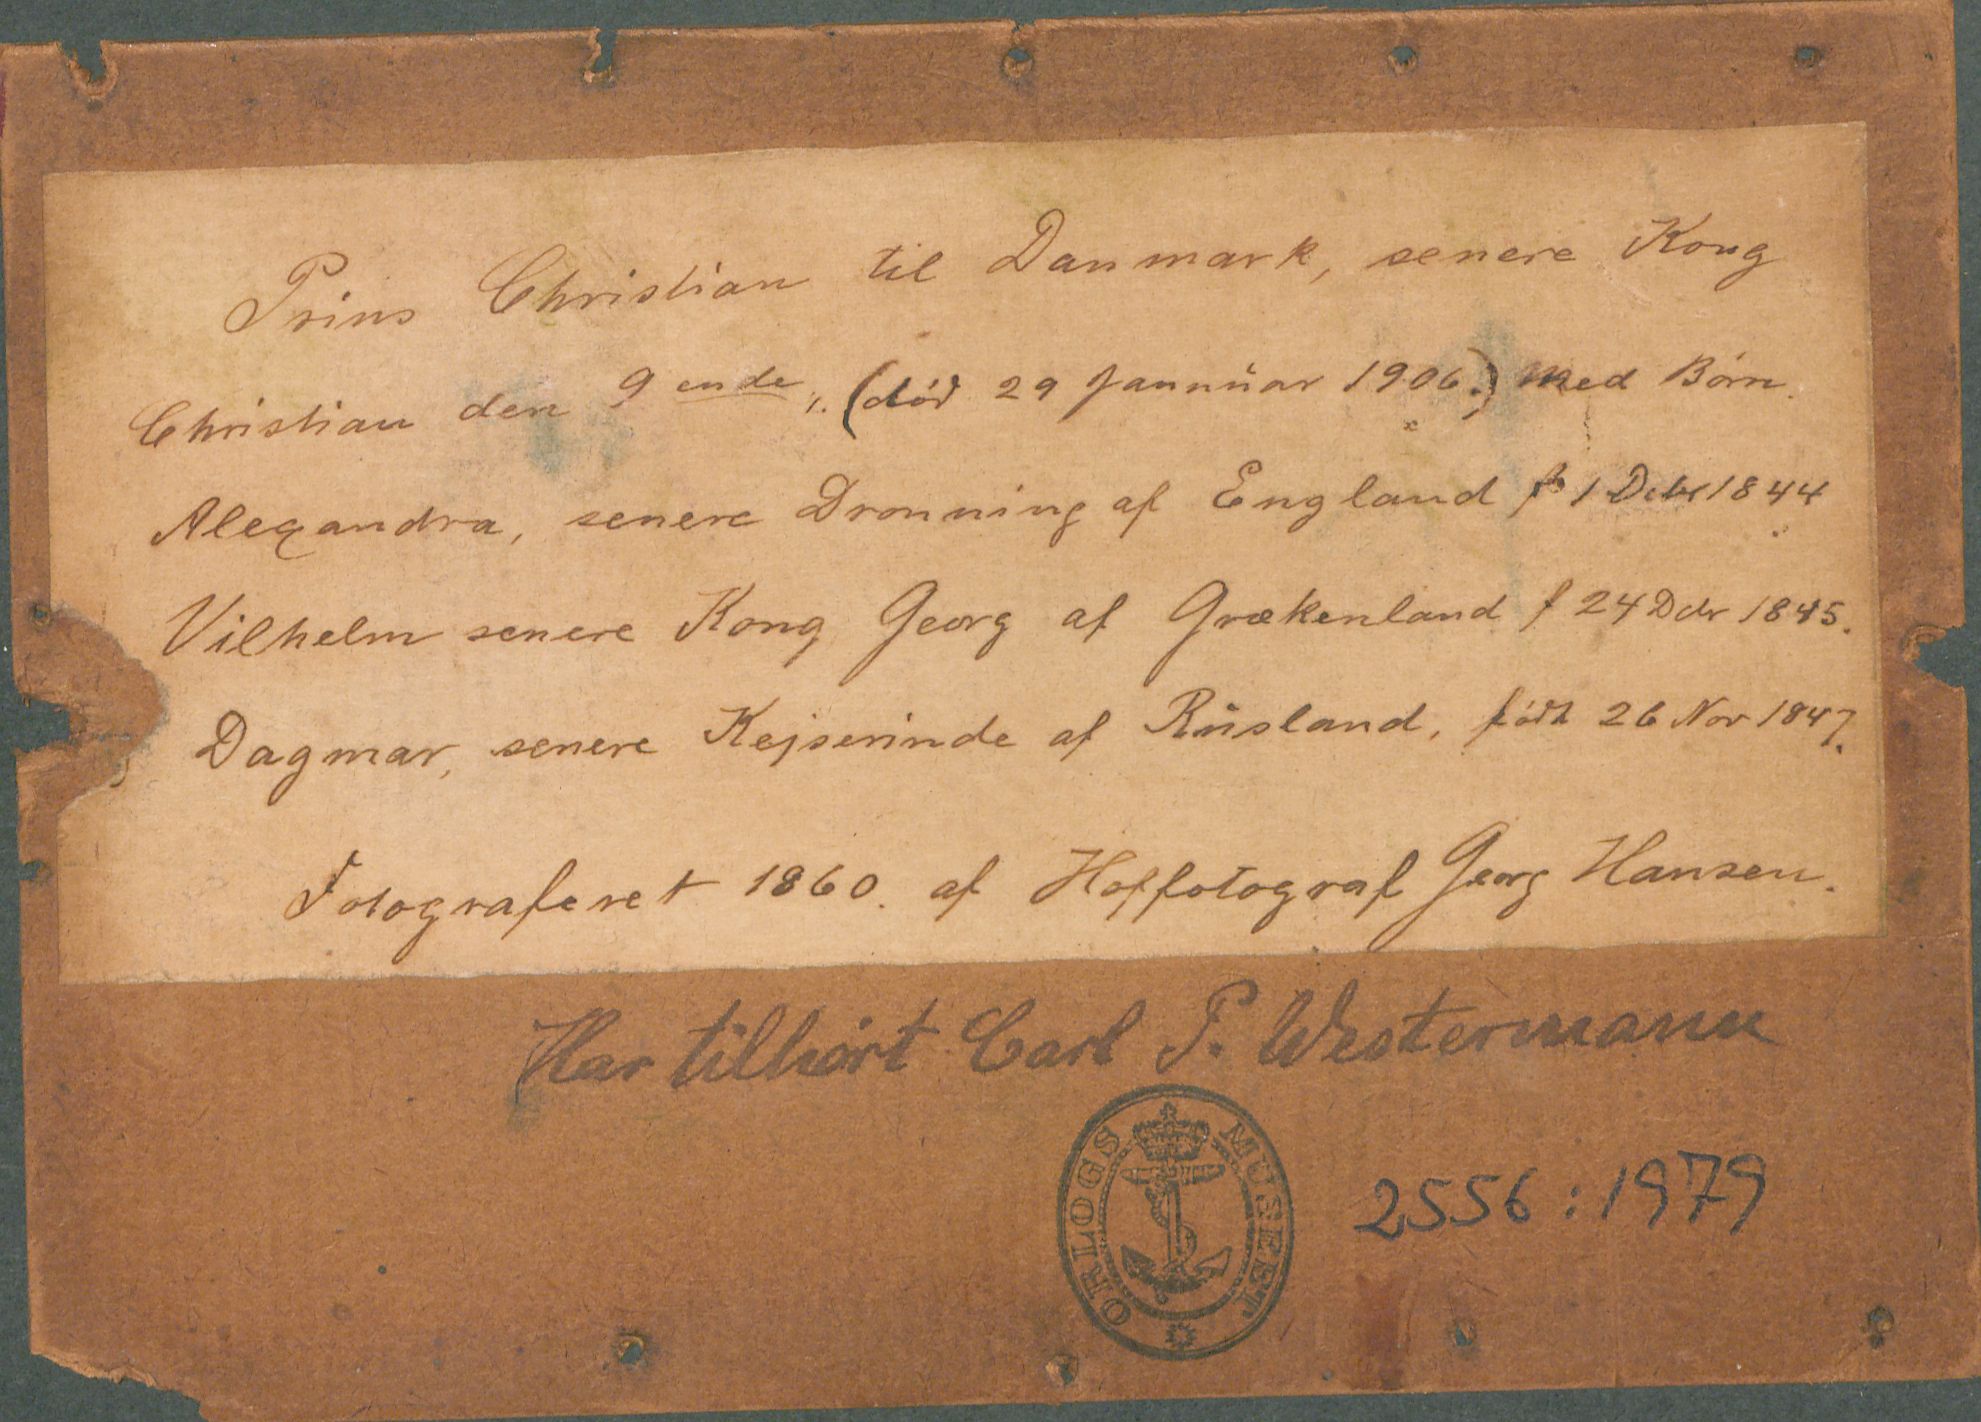 Prins Christian til Danmark, senere Kong
Christian den 9ende, (død 29 Januar 1906.) med Børn.
Alexandra, senere Dronning af England f 1 Debr 1844
Vilhelm senere Kong Georg af Grækenland f 24 Dcbr 1845.
Dagmar, senere Kejserinde af Rusland, født 26 Nov 1847.
Fotograferet 1860. af Hoffotograf Georg Hansen.
Har tilhørt Carl P. Westermann
ORLOGS MUSEET
2556:1979